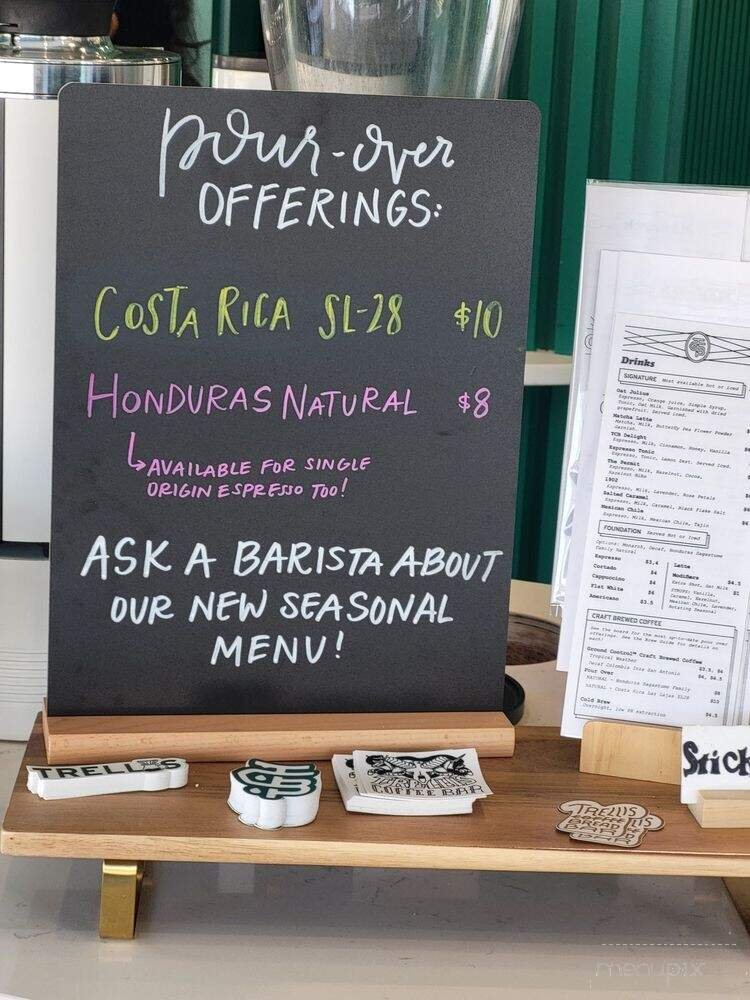 pour-over
OFFERINGS:
COSTA RICA SL-28 $10
HONDURAS NATURAL $8
AVAILABLE FOR SINGLE
ORIGIN ESPRESSO TOO!
ASK A BARISTA ABOUT
OUR NEW SEASONAL
MENU!
Drinks
SIGNATURE Most available hot or iced
Oat Julius
Espresso, Orange juice, Simple Syrup,
Tonic, Oat Milk. Garnished with dried
grapefruit. Served iced.
Matcha Latte
Matcha, Milk, Butterfly Pea Flower Powder
Garnish.
TCB Delight
Espresso, Milk, Cinnamon, Honey, Vanilla
Espresso Tonic
Espresso, Tonic, Lemon Zest. Served iced.
The Permit
Espresso, Milk, Hazelnut, Cocoa,
1902
Espresso, Milk, Lavender, Rose Petals
Salted Caramel
Espresso, Milk, Caramel, Black Flake Salt
Mexican Chile
Espresso, Milk, Mexican Chile, Tajin
FOUNDATION Served Hot or Iced
Options: Monarch, Decaf, Honduras Sagastume
Family Natural
Espresso $3.4
Cortado $4
Cappuccino $4
Flat White $4
Americano $3.5
Latte
Modifiers
Extra Shot, Oat Milk
SYRUPS: Vanilla,
Caramel, Hazelnut,
Mexican Chile, Lavender,
Rotating Seasonal
CRAFT BREWED COFFEE
See the board for the most up-to-date pour over
offerings. See the Brew Guide for details on
each!
Ground Control™ Craft Brewed Coffee $3.5, $4
Tropical Weather
Decaf Colombia Inza San Antonio
Pour Over
NATURAL - Honduras Sagastume Family $8
NATURAL - Costa Rica Las Lajas SL28 $10
Cold Brew
Overnight, low PH extraction $4.5
TRELLIS
COFFEE BAR
TRELLIS
Stick
menupix